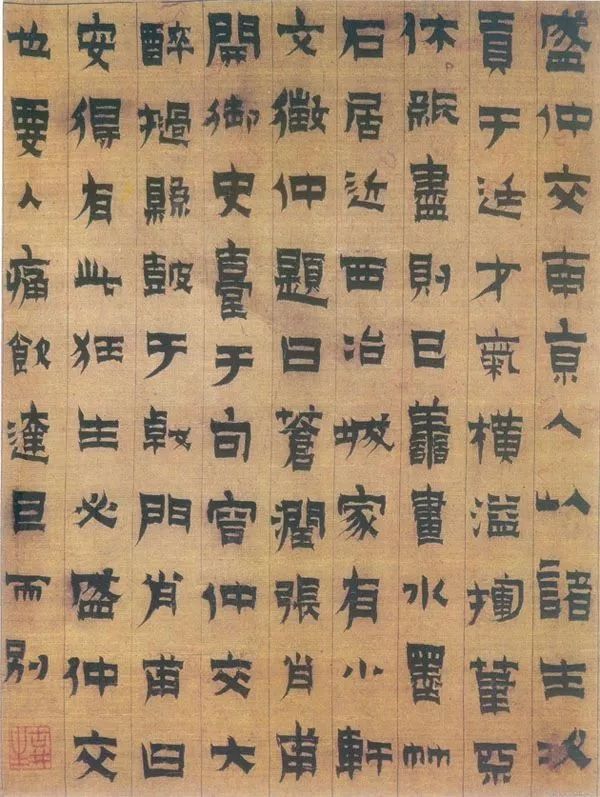 盛仲交南京人以諸生次
貢于廷才氣橫溢筆不
休紙盡則已善畫水墨竹
石居近西冶城家有小軒
文徵仲題曰蒼潤張肖甫
開御史臺于句容仲交大
醉撾縣鼓于門肖甫曰
安得有此狂生必盛仲交
也要入痛飲達旦而別